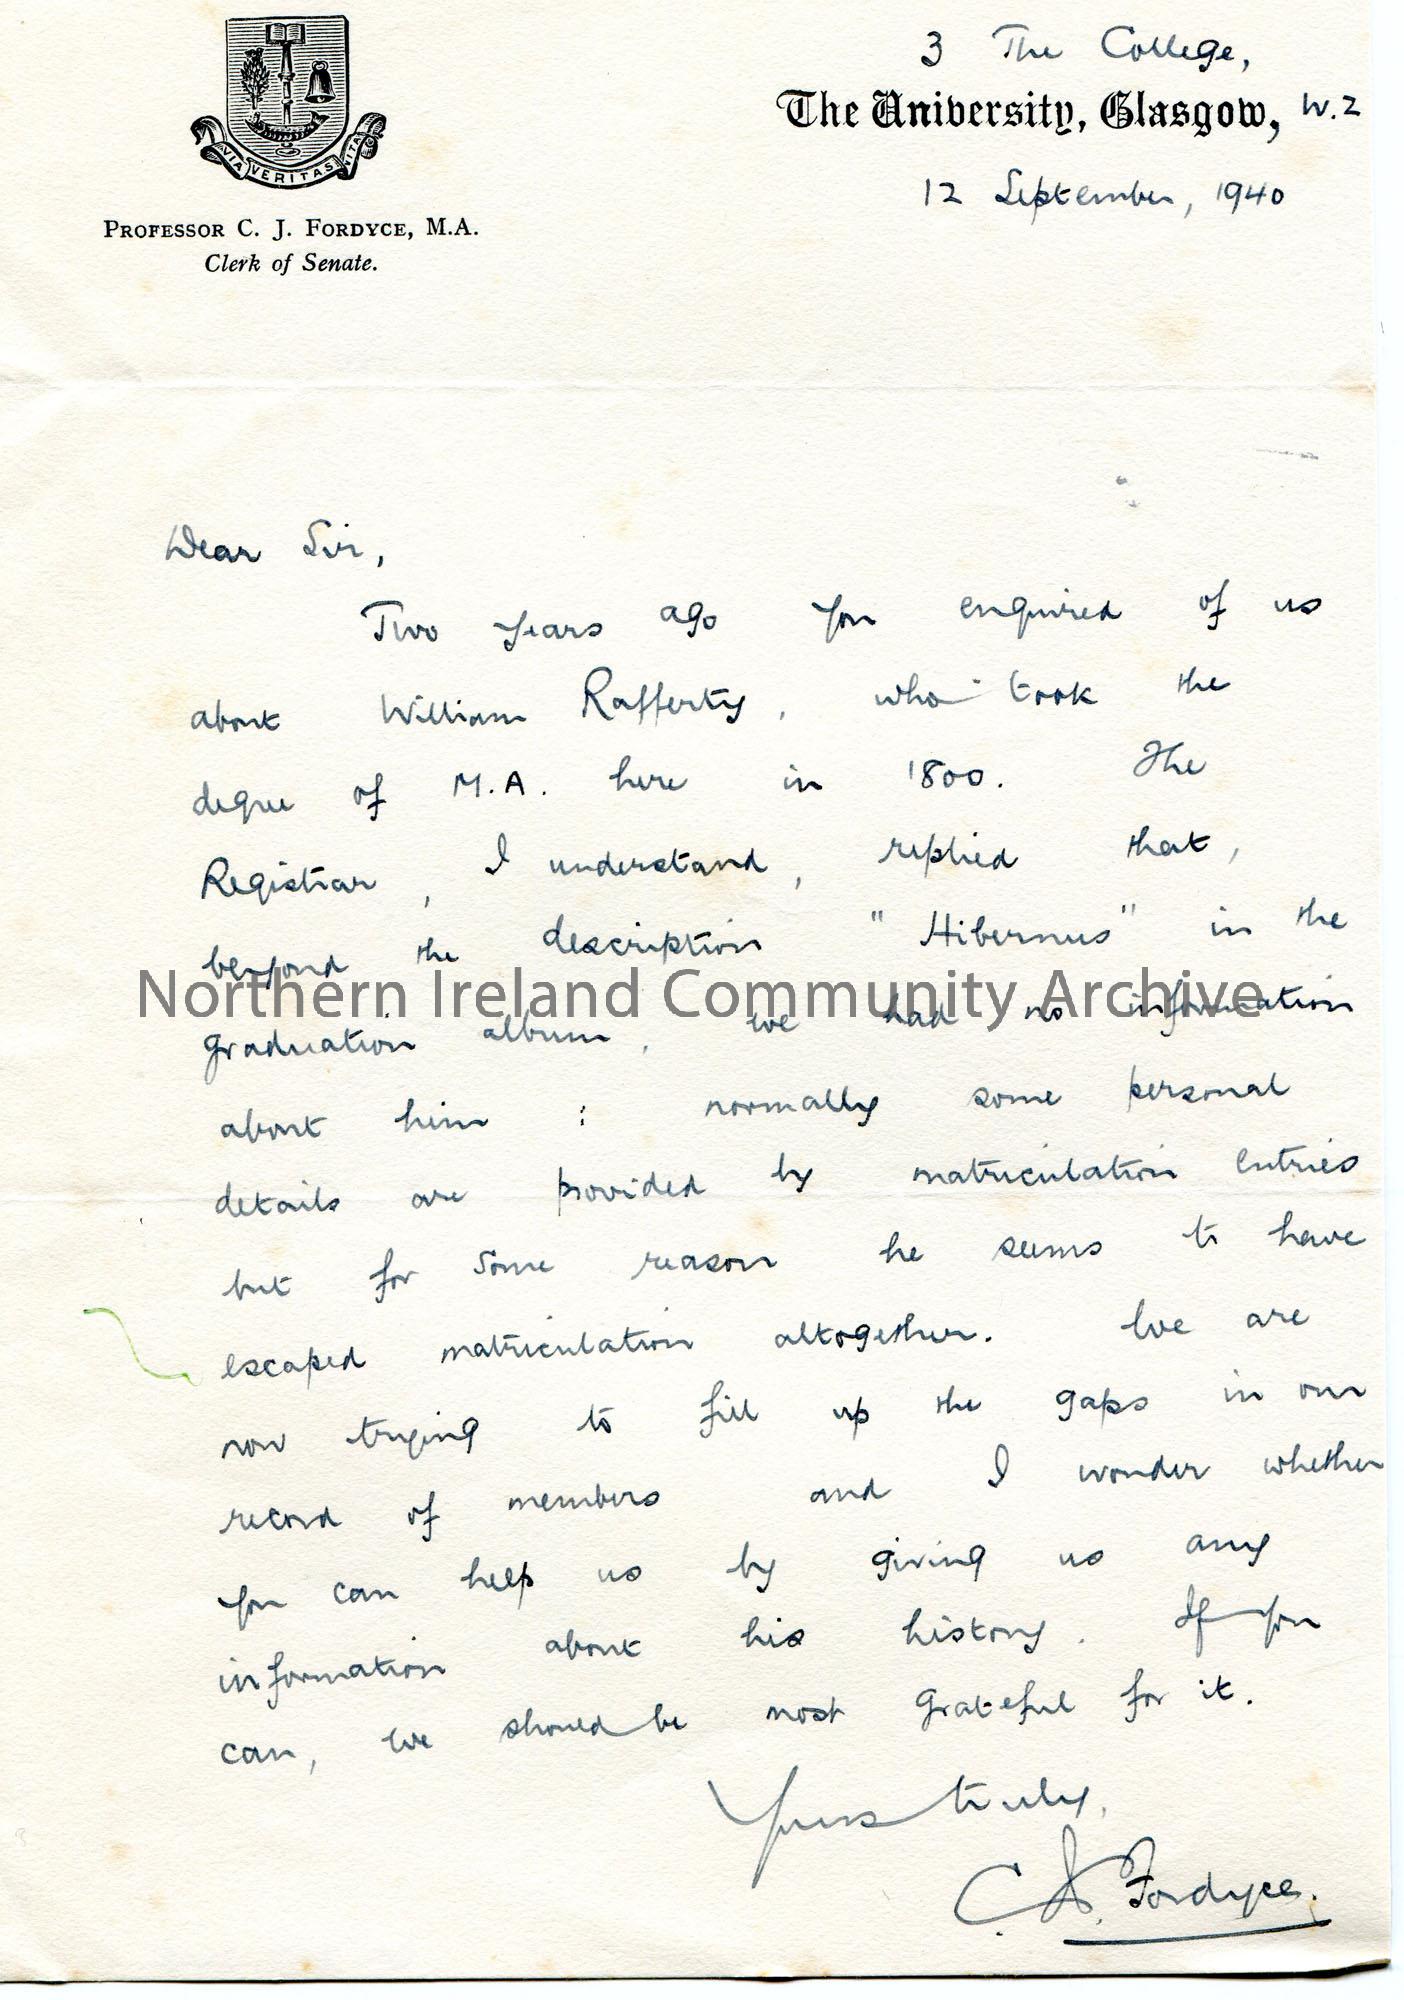 3 The College,
The University, Glasgow, W.2
12 September, 1940
VIA VERITAS VITA
PROFESSOR C. J. FORDYCE, M.A.
Clerk of Senate.
Dear Sir,
Two years ago you enquired of us
about William Rafferty, who took the
degree of M.A. here in 1800. The
Registrar, I understand, replied that,
beyond the description "Hibernus" in the
Northern Ireland Community Archive
graduation album, we had no information
about him : normally some personal
details are provided by matriculation entries
but for some reason he seems to have
escaped matriculation altogether. We are
now trying to fill up the gaps in our
record of members and I wonder whether
you can help us by giving us any
information about his history. If you
can, we should be most grateful for it.
Yours truly,
C. J. Fordyce.